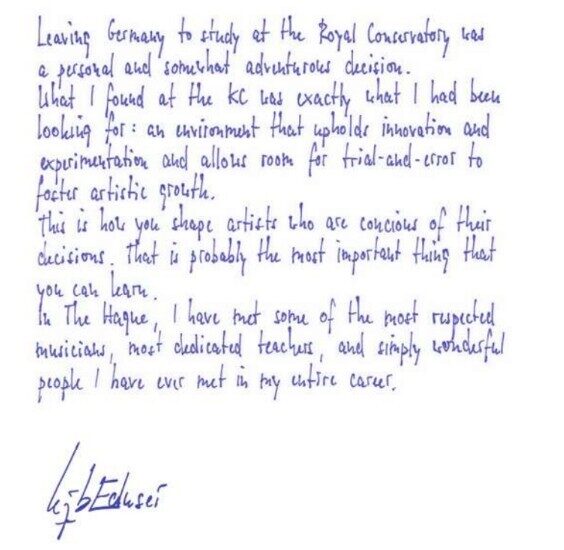 Leaving Germany to study at the Royal Conservatory was
a personal and somewhat adventurous decision.
What I found at the KC was exactly what I had been
looking for: an environment that upholds innovation and
experimentation and allows room for trial-and-error to
foster artistic growth.
This is how you shape artists who are concious of their
decisions. That is probably the most important thing that
you can learn.
In The Hague, I have met some of the most respected
musicians, most dedicated teachers, and simply wonderful
people I have ever met in my entire career.
Edusei